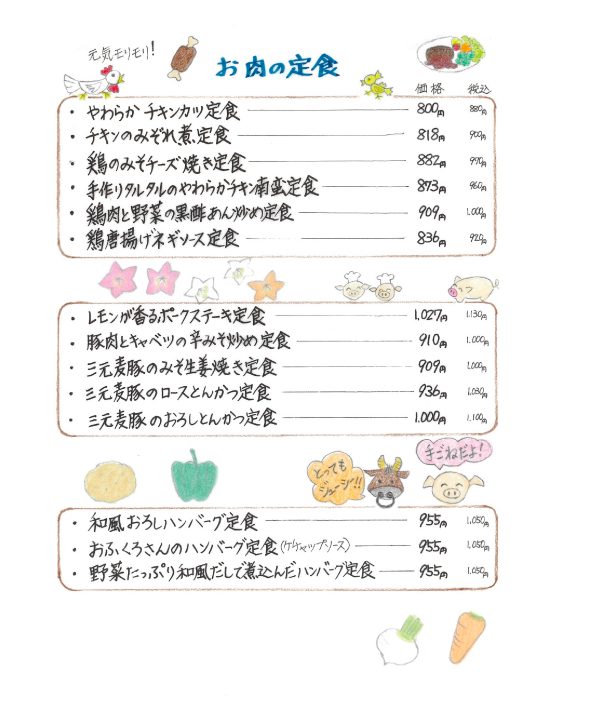 元気モリモリ!
お肉の定食
価格 税込
・やわらかチキンカツ定食 800円 880円
・チキンのみぞれ煮定食 818円 900円
・鶏のみそチーズ焼き定食 882円 970円
・手作りタルタルのやわらかチキン南蛮定食 873円 960円
・鶏肉と野菜の黒酢あん炒め定食 909円 1,000円
・鶏唐揚げネギソース定食 836円 920円
・レモンが香るポークステーキ定食 1,027円 1,130円
・豚肉とキャベツの辛みそ炒め定食 910円 1,000円
・三元麦豚のみそ生姜焼き定食 909円 1,000円
・三元麦豚のロースとんかつ定食 936円 1,030円
・三元麦豚のおろしとんかつ定食 1,000円 1,100円
手ごねだよ!
とっても
ジューシー!!
・和風おろしハンバーグ定食 955円 1,050円
・おふくろさんのハンバーグ定食(ケチャップソース) 955円 1,050円
・野菜たっぷり和風だしで煮込んだハンバーグ定食 955円 1,050円